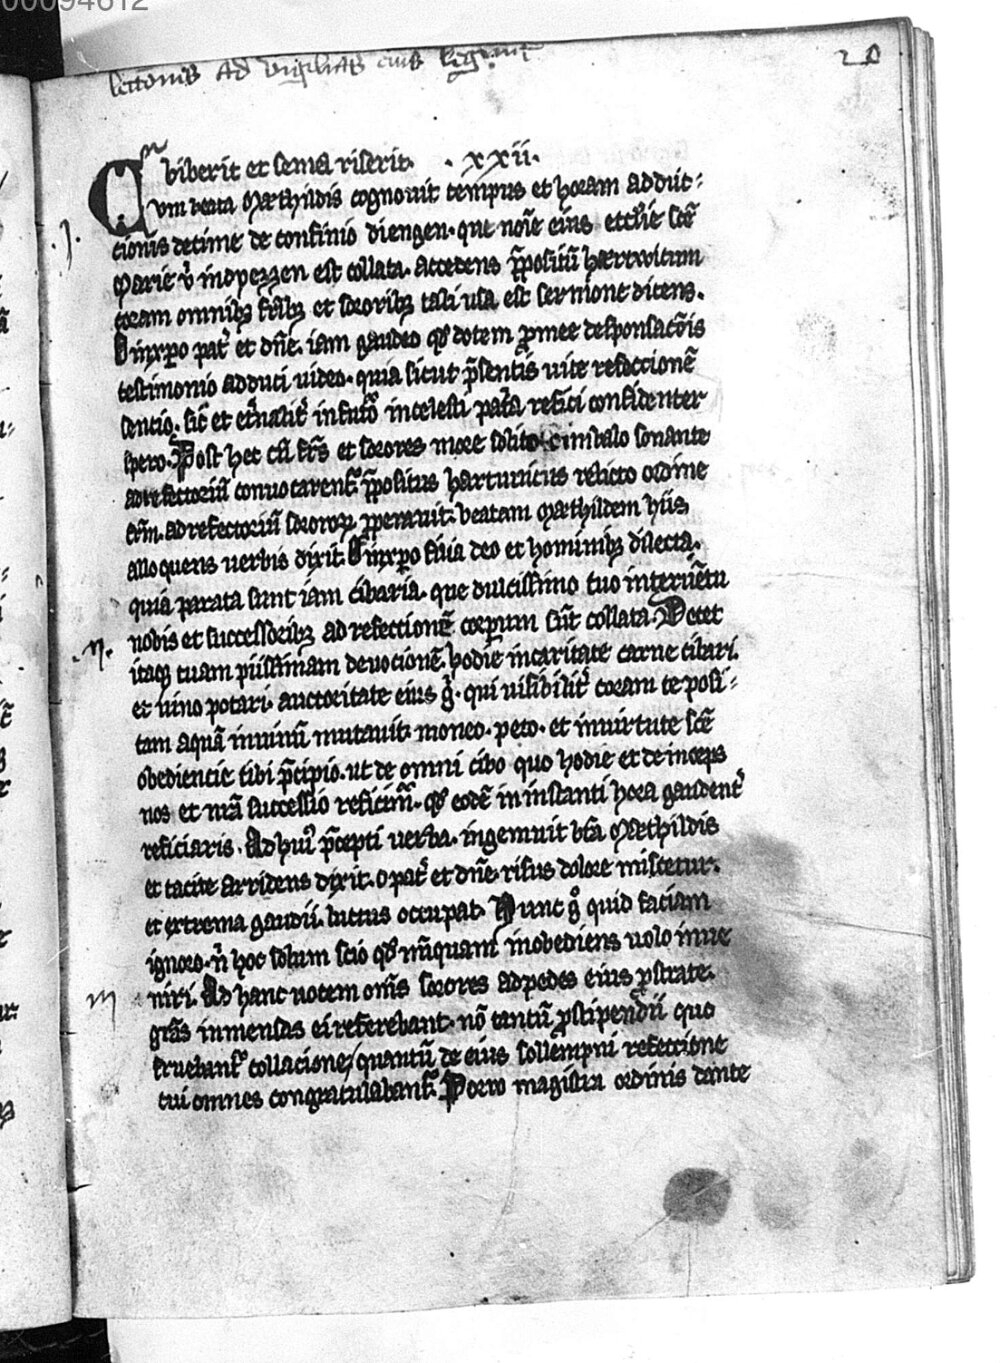 00094612
lectiones ad vigilias eius legunt
20
biberit et semel riserit. . xxii.
Cum beata Mæthildis cognouit tempus et horam adduc-
.j.
cionis decime de confinio diengen. que noīe eius ecclīe scē
Marie v̄ inopezzen est collata. accedens p̄positū hærtwicum
coram omnibꝫ fr̄ibꝫ et sororibꝫ tali usa est sermone dicens.
O in xp̄o pat̄ et dn̄e. iam gaudeo qd̄ dotem ꝓ mee desponsacōis
testimonio adduci uideo. quia sicut p̄sentis uite refeccionē
sencio. sic̄ et et̄nalit̄ in fut̄o in celesti pat̄a refici confidenter
spero. Post hec cū fr̄s et sorores more solito cimbalo sonante
ad refectoriū conuocarent̄. p̄positus harturicus relicto ordine
fr̄m. ad refectoriū sororꝝ ꝓperauit. beatam Mæthildem hiis
alloquens uerbis dixit. O in xp̄o filia deo et hominibꝫ dilecta.
quia parata sunt iam cibaria. que dulcissimo tuo interuētu
nobis et successoribꝫ ad refeccionē corporum sūt collata. Decet
.ij.
itaqꝫ tuam piissimam deuocionē. hodie in caritate carne cibari.
et uino potari. auctoritate eius g̊. qui uisibilit̄ coram te posi-
tam aquā in uinū mutauit. moneo. peto. et in uirtute scē
obediencie tibi p̄cipio. ut de omni cibo quo hodie et deinceps
nos et nr̄a successio reficim̄. qd̄ eodē in instanti hora gaudent̄
reficiaris. Ad hui᷒ p̄cepti uerba. ingemuit bt̄a Mæthildis
et tacite arridens dixit. o pat̄ et dn̄e. risus dolore miscetur.
et extrema gaudii. luctus occupat. Nunc g̊ quid faciam
ignoro. n̄ hoc solum scio qd̄ nūquam inobediens uolo inue
iij
niri. Ad hanc uocem om̄s sorores ad pedes eius ꝓstrate.
gr̄as inmensas ei referebant. nō tantū ꝓ stipendii quo
fruebant̄ collacione/ quantū de eius sollempni refeccione
cui omnes congratulabant̄. Porro magistra ordinis dante